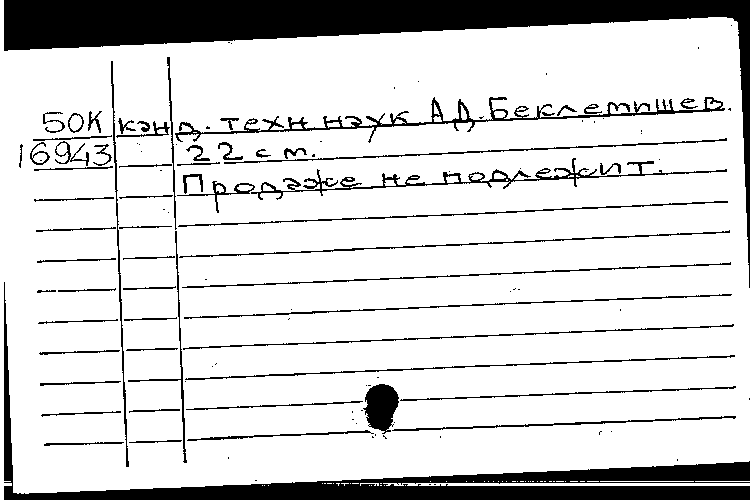 50К канд. техн наук А.Д. Беклемишев.
16943 22 см.
Продаже не подлежит.